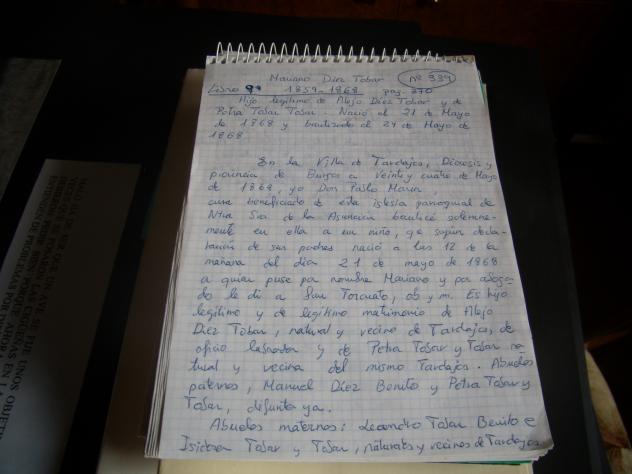 Mariano Diez Tobar nº 339
Libro 9º 1859-1868 pag. 270
Hijo legitimo de Alejo Diez Tobar y de
Petra Tobar Tobar. Nació el 21 de Mayo
de 1868 y bautizado el 24 de Mayo de
1868.
En la Villa de Tardajos, Diocesis y
provincia de Burgos a veinte y cuatro de Mayo
de 1868, yo Don Pablo
cura beneficiado de esta iglesia parroquial de
Ntra Sra de la Asunción bauticé solemne-
mente en ella a un niño, qe según decla-
ración de sus padres nació a las 12 de la
mañana del dia 21 de mayo de 1868
a quien puse por nombre Mariano y por aboga-
do le di a San Torcuato, ob y m. Es hijo
legitimo y de legitimo matrimonio de Alejo
Diez Tobar, natural y vecino de Tardajos, de
oficio labrador y de Petra Tobar y Tobar na
tural y vecina del mismo Tardajos. Abuelos
paternos, Manuel Díez Benito y Petra Tobar y
Tobar, difunta ya.
Abuelos maternos: Leandro Tobar Benito e
Isidora Tobar y Tobar, naturales y vecinos de Tardajos